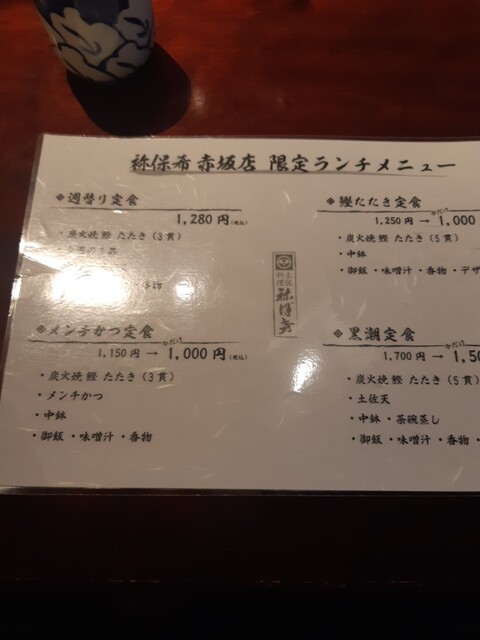 祢保希 赤坂店 限定ランチメニュー
※週替り定食
1,280円(税込)
・炭火焼 鰹 たたき（3貫）
※メンチかつ定食
今だけ
1,150円 → 1,000円(税込)
・炭火焼 鰹 たたき（3貫）
・メンチかつ
・中鉢
・御飯 ・味噌汁 ・香物
土佐料理 祢保希
※鰹たたき定食
今だけ
1,250円 → 1,000
・炭火焼 鰹 たたき（5貫）
・中鉢
・御飯 ・味噌汁 ・香物 ・デザ
※黒潮定食
今だけ
1,700円 → 1,50
・炭火焼 鰹 たたき（5貫）
・土佐天
・中鉢 ・茶碗蒸し
・御飯 ・味噌汁 ・香物 ・